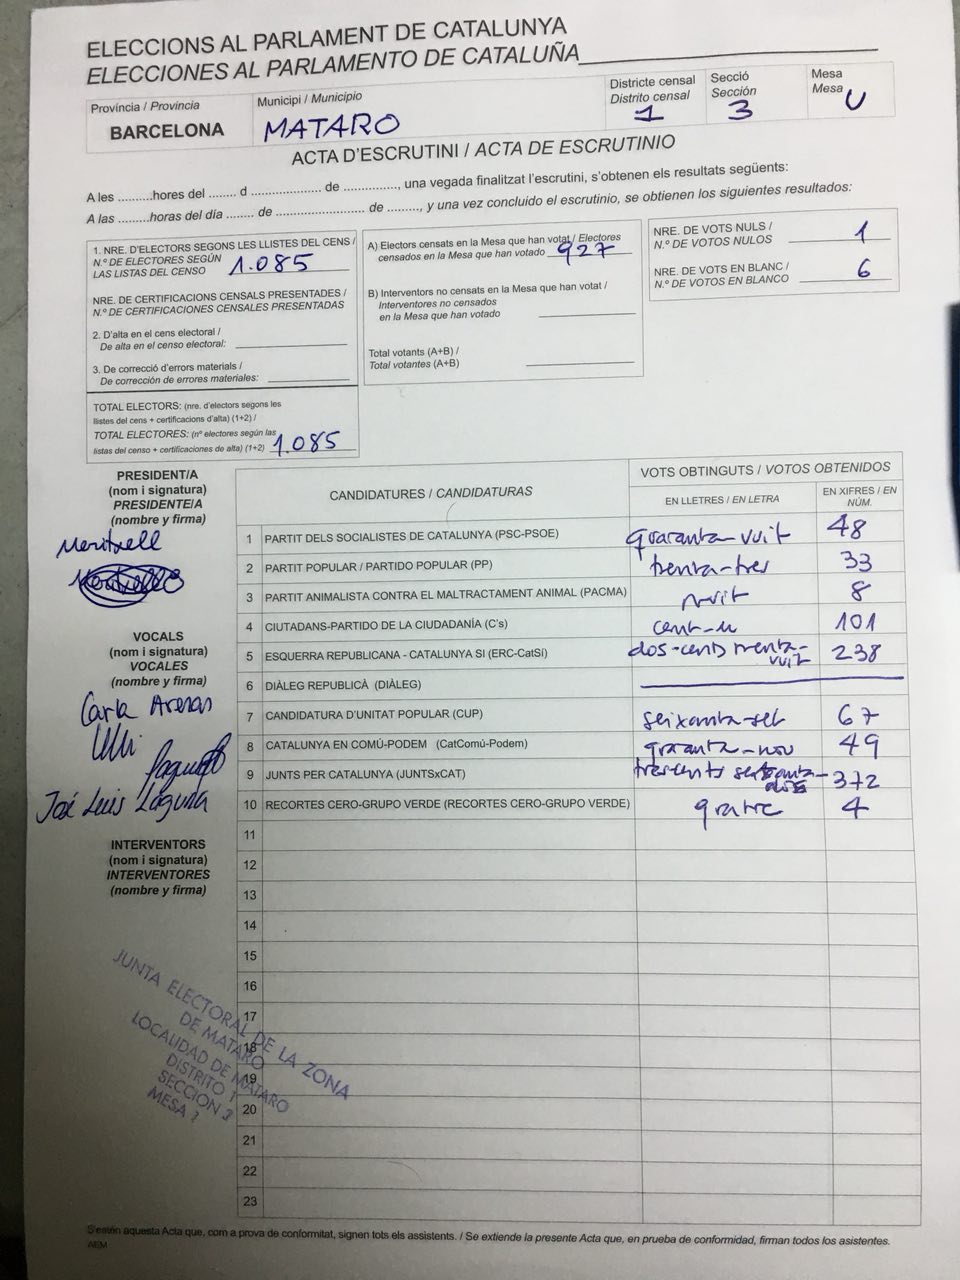 ELECCIONS AL PARLAMENT DE CATALUNYA
ELECCIONES AL PARLAMENTO DE CATALUÑA
Província / Provincia
BARCELONA
Municipi / Municipio
MATARO
Districte censal
Distrito censal
1
Secció
Sección
3
Mesa
Mesa
U
ACTA D'ESCRUTINI / ACTA DE ESCRUTINIO
A les ..........hores del ........ d ..................... de ..............., una vegada finalitzat l'escrutini, s'obtenen els resultats següents:
A las .........horas del día ........ de ........................... de ........., y una vez concluido el escrutinio, se obtienen los siguientes resultados:
1. NRE. D'ELECTORS SEGONS LES LLISTES DEL CENS /
N.º DE ELECTORES SEGÚN
LAS LISTAS DEL CENSO 1.085
NRE. DE CERTIFICACIONS CENSALS PRESENTADES /
N.º DE CERTIFICACIONES CENSALES PRESENTADAS
2. D'alta en el cens electoral /
De alta en el censo electoral:
3. De correcció d'errors materials /
De corrección de errores materiales:
TOTAL ELECTORS: (nre. d'electors segons les
llistes del cens + certificacions d'alta) (1+2) /
TOTAL ELECTORES: (nº electores según las
listas del censo + certificaciones de alta) (1+2) 1.085
A) Electors censats en la Mesa que han votat / Electores
censados en la Mesa que han votado 927
B) Interventors no censats en la Mesa que han votat /
Interventores no censados
en la Mesa que han votado
Total votants (A+B) /
Total votantes (A+B)
NRE. DE VOTS NULS /
N.º DE VOTOS NULOS 1
NRE. DE VOTS EN BLANC /
N.º DE VOTOS EN BLANCO 6
PRESIDENT/A
(nom i signatura)
PRESIDENTE/A
(nombre y firma)
Meritxell
VOCALS
(nom i signatura)
VOCALES
(nombre y firma)
Carla Arenas
José Luis Laguna
INTERVENTORS
(nom i signatura)
INTERVENTORES
(nombre y firma)
CANDIDATURES / CANDIDATURAS
VOTS OBTINGUTS / VOTOS OBTENIDOS
EN LLETRES / EN LETRA
EN XIFRES / EN
NÚM.
1 PARTIT DELS SOCIALISTES DE CATALUNYA (PSC-PSOE) quaranta-vuit 48
2 PARTIT POPULAR / PARTIDO POPULAR (PP) trenta-tres 33
3 PARTIT ANIMALISTA CONTRA EL MALTRACTAMENT ANIMAL (PACMA) vuit 8
4 CIUTADANS-PARTIDO DE LA CIUDADANÍA (C's) cent-u 101
5 ESQUERRA REPUBLICANA - CATALUNYA SI (ERC-CatSí) dos-cents trenta-vuit 238
6 DIÀLEG REPUBLICÀ (DIÀLEG)
7 CANDIDATURA D'UNITAT POPULAR (CUP) seixanta-set 67
8 CATALUNYA EN COMÚ-PODEM (CatComú-Podem) quaranta-nou 49
9 JUNTS PER CATALUNYA (JUNTSxCAT) trescents setanta-dos 372
10 RECORTES CERO-GRUPO VERDE (RECORTES CERO-GRUPO VERDE) quatre 4
11
12
13
14
15
16
17
18
19
20
21
22
23
JUNTA ELECTORAL DE LA ZONA
DE MATARO
LOCALIDAD DE MATARO
DISTRITO 1
SECCION 3
MESA ?
S'estén aquesta Acta que, com a prova de conformitat, signen tots els assistents. / Se extiende la presente Acta que, en prueba de conformidad, firman todos los asistentes.
AEM